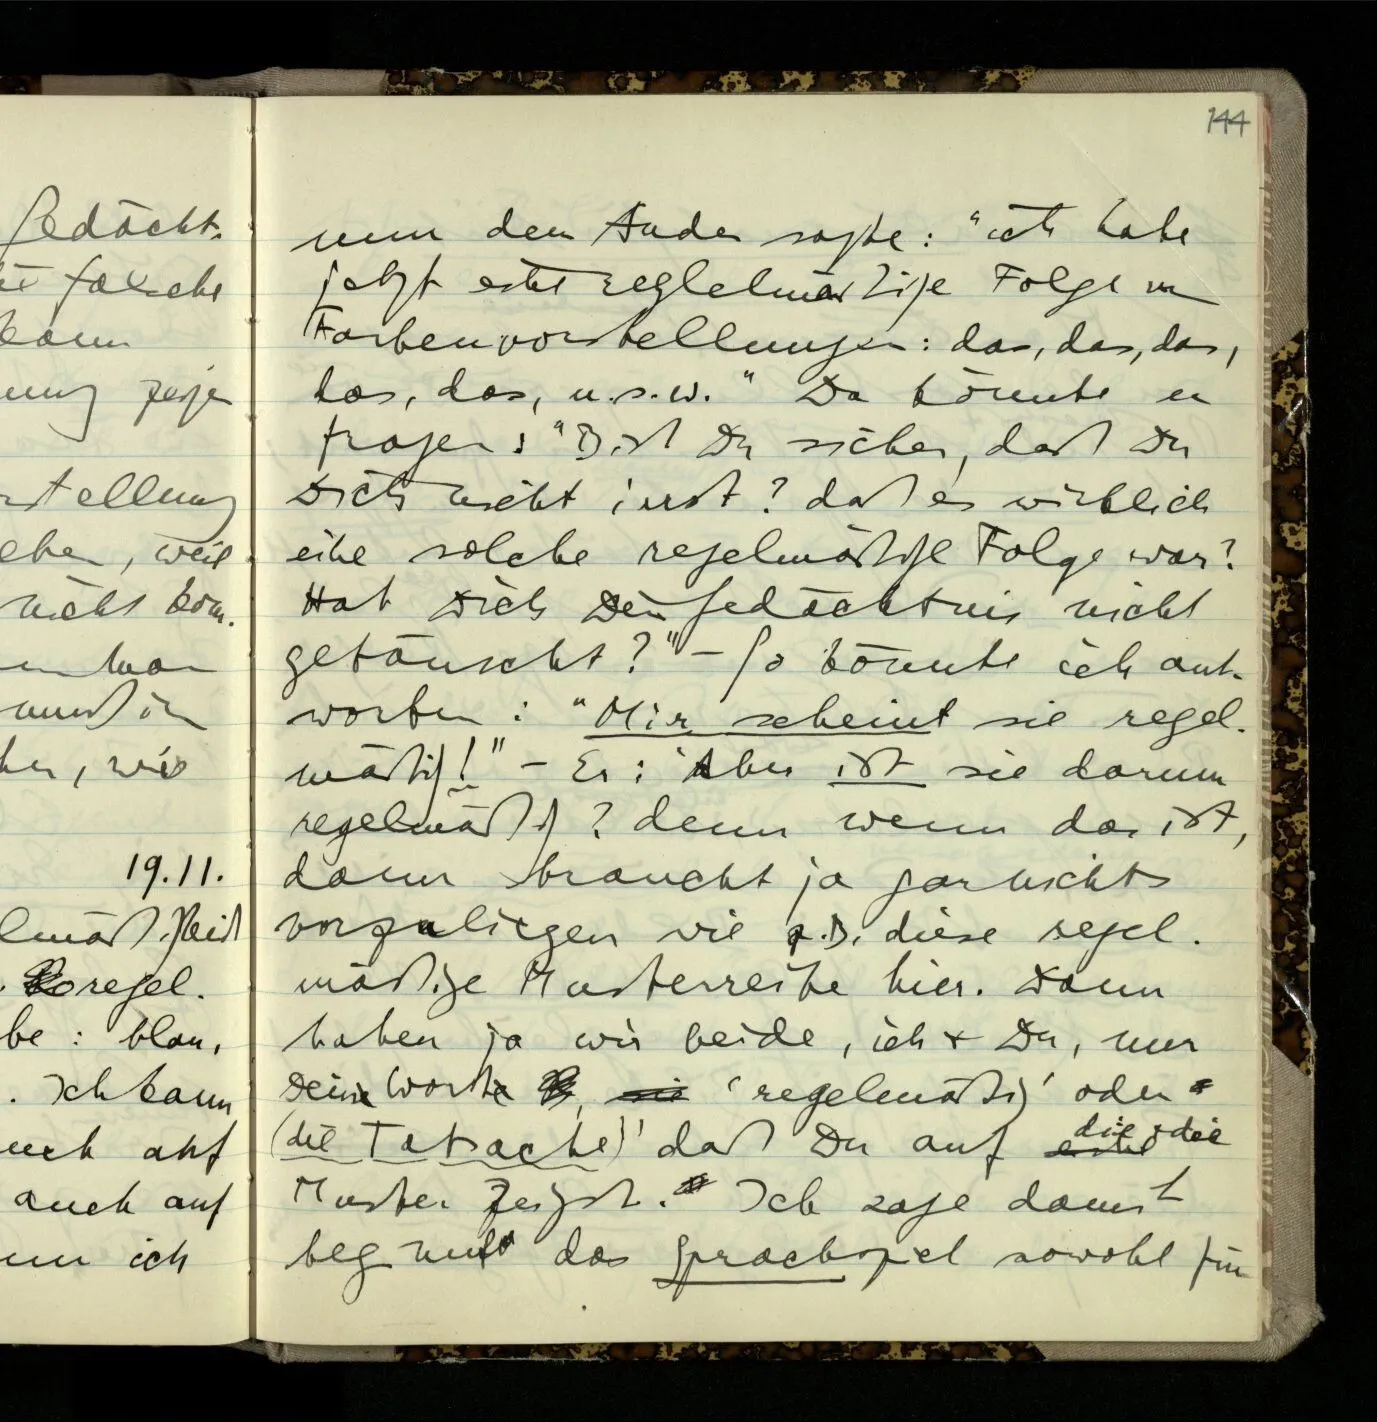 144
Gedächt-
falsche
kann
zeige
stellung
eben, weil
nicht kom-
man
muß ich
wie
19.11.
lmäßigkeit
regel-
be: blau,
. Ich kann
auch auf
auch auf
ich
nun dem Andern sagte: "ich habe
jetzt eine regelmäßige Folge von
Farbenvorstellungen: das, das, das,
das, das, u.s.w." Da könnte er
fragen: "Bist Du sicher, daß Du
Dich nicht irrst? daß es wirklich
eine solche regelmäßige Folge war?
Hat Dich Dein Gedächtnis nicht
getäuscht?" – So könnte ich ant-
worten: "Mir scheint sie regel-
mäßig!" – Er: 'Aber ist sie darum
regelmäßig? denn wenn das ist,
dann braucht ja garnichts
vorzuliegen wie z.B. diese regel-
mäßige Musterreihe hier. Dann
haben ja wir beide, ich + Du, nur
Deine Worte, sie 'regelmäßig' oder
(die Tatsache) daß Du auf die & die
Muster zeigst. Ich sage damit
beginnt das Sprachspiel sowohl für